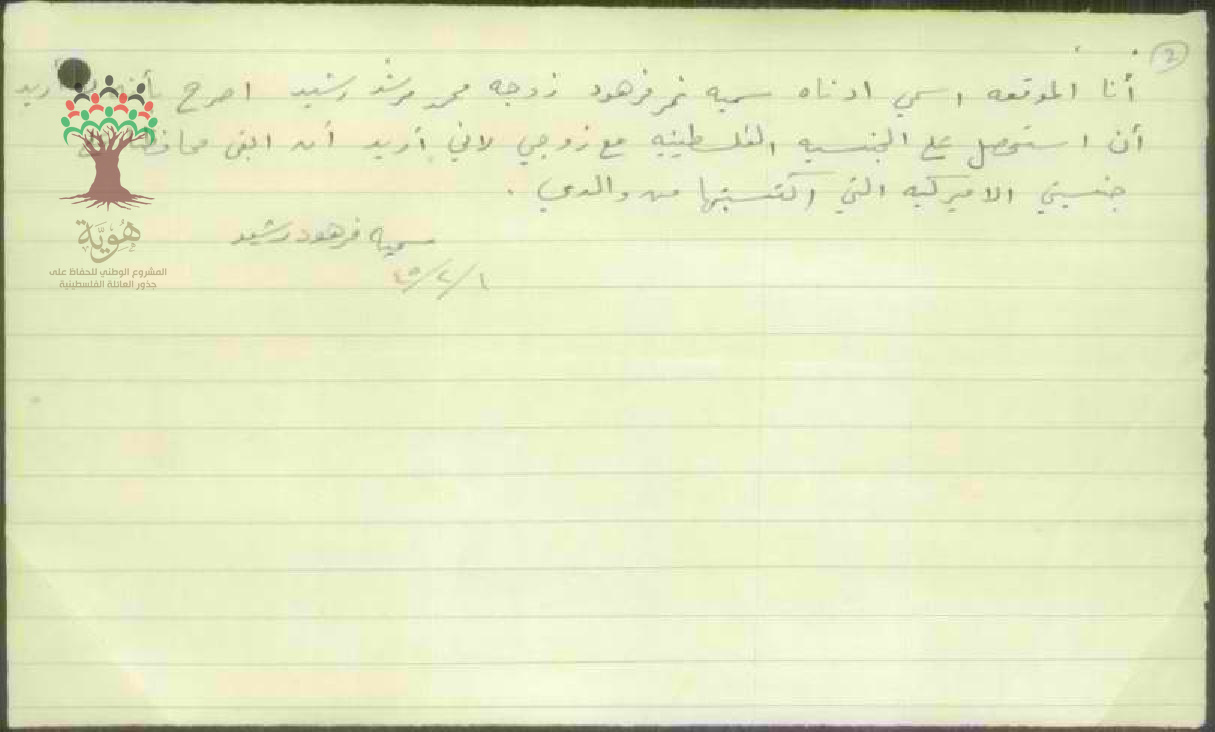 2
أنا الموقعه اسمي ادناه سميه نمر فرهود زوجه محمد مرشد رشيد اصرح بأنني لا أريد
أن استحصل على الجنسيه الفلسطينيه مع زوجي لاني أريد أن ابقى محافظة على
جنسيتي الاميركيه التي اكتسبتها من والدي .
سميه فرهود رشيد
١/٢/٤٥
هُوِيَّة
المشروع الوطني للحفاظ على
جذور العائلة الفلسطينية